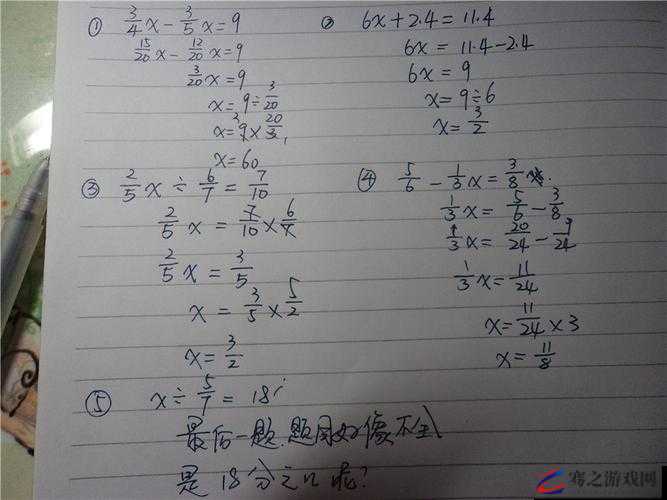 ① 3/4 x - 3/5 x = 9
15/20 x - 12/20 x = 9
3/20 x = 9
x = 9 ÷ 3/20
x = 9 × 20/3
x = 60
② 6x + 2.4 = 11.4
6x = 11.4 - 2.4
6x = 9
x = 9 ÷ 6
x = 3/2
③ 2/5 x ÷ 6/7 = 7/10
2/5 x = 7/10 × 6/7
2/5 x = 3/5
x = 3/5 × 5/2
x = 3/2
④ 5/6 - 1/3 x = 3/8
1/3 x = 5/6 - 3/8
1/3 x = 20/24 - 9/24
1/3 x = 11/24
x = 11/24 × 3
x = 11/8
⑤ x ÷ 5/7 = 18
最后一题.题目好像不全
是18分之几呢?
骞之游戏网